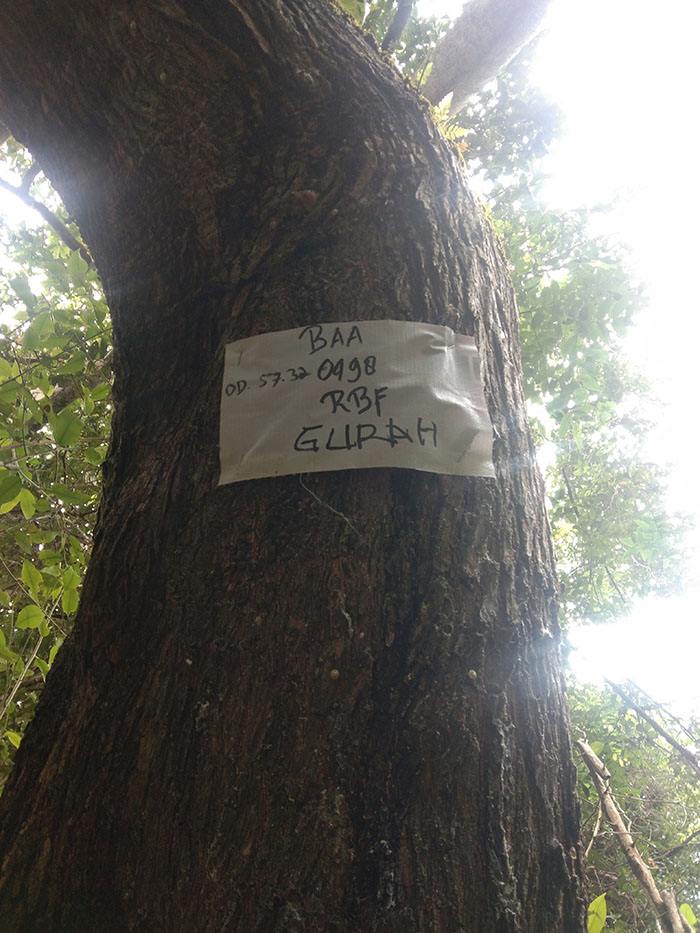 BAA
OD. 57.32 0498
RBF
GURAH